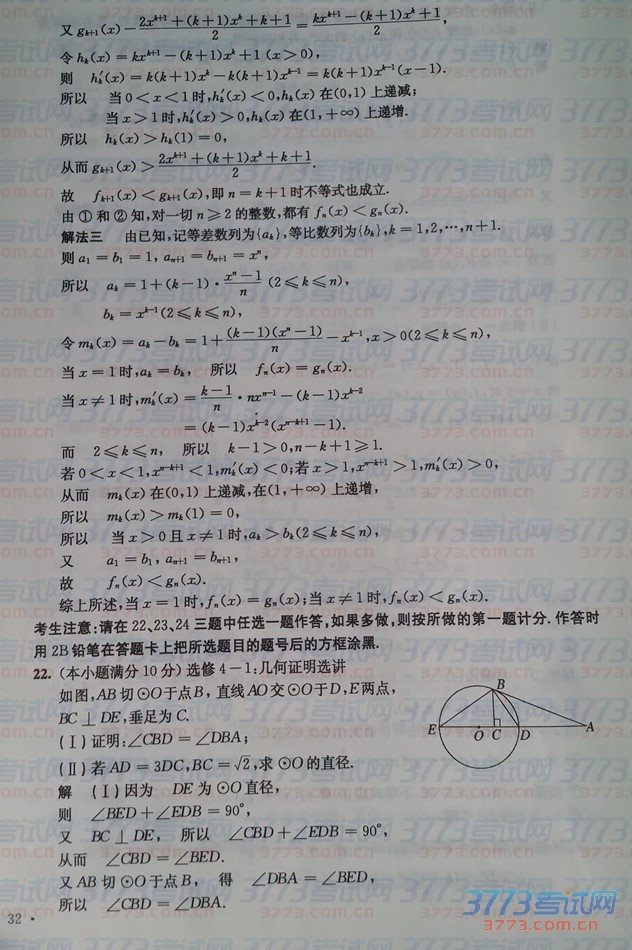 又 gₖ₊₁(x) − (2xᵏ⁺¹+(k+1)xᵏ+k+1)/2 = (kxᵏ⁺¹−(k+1)xᵏ+1)/2,
令 hₖ(x) = kxᵏ⁺¹−(k+1)xᵏ+1 (x>0),
则 h′ₖ(x) = k(k+1)xᵏ−k(k+1)xᵏ⁻¹ = k(k+1)xᵏ⁻¹(x−1).
所以 当0<x<1时,h′ₖ(x)<0,hₖ(x)在(0,1)上递减;
当x>1时,h′ₖ(x)>0,hₖ(x)在(1,+∞)上递增.
所以 hₖ(x)>hₖ(1)=0,
从而 gₖ₊₁(x) > (2xᵏ⁺¹+(k+1)xᵏ+k+1)/2.
故 fₖ₊₁(x)<gₖ₊₁(x),即n=k+1时不等式也成立.
由①和②知,对一切n≥2的整数,都有fₙ(x)<gₙ(x).
解法三 由已知,记等差数列为{aₖ},等比数列为{bₖ},k=1,2,…,n+1.
则a₁=b₁=1, aₙ₊₁=bₙ₊₁=xⁿ,
所以 aₖ=1+(k−1)·(xⁿ−1)/n (2≤k≤n),
bₖ=xᵏ⁻¹(2≤k≤n),
令mₖ(x)=aₖ−bₖ=1+(k−1)(xⁿ−1)/n−xᵏ⁻¹,x>0(2≤k≤n),
当x=1时,aₖ=bₖ, 所以 fₙ(x)=gₙ(x).
当x≠1时,m′ₖ(x)=(k−1)/n·nxⁿ⁻¹−(k−1)xᵏ⁻²
=(k−1)xᵏ⁻²(xⁿ⁻ᵏ⁺¹−1).
而 2≤k≤n, 所以 k−1>0,n−k+1≥1.
若0<x<1,xⁿ⁻ᵏ⁺¹<1,m′ₖ(x)<0;若x>1,xⁿ⁻ᵏ⁺¹>1,m′ₖ(x)>0,
从而 mₖ(x)在(0,1)上递减,在(1,+∞)上递增,
所以 mₖ(x)>mₖ(1)=0,
所以 当x>0且x≠1时,aₖ>bₖ(2≤k≤n),
又 a₁=b₁,aₙ₊₁=bₙ₊₁,
故 fₙ(x)<gₙ(x).
综上所述,当x=1时,fₙ(x)=gₙ(x);当x≠1时,fₙ(x)<gₙ(x).
考生注意:请在22、23、24三题中任选一题作答,如果多做,则按所做的第一题计分.作答时
用2B铅笔在答题卡上把所选题目的题号后的方框涂黑.
22.(本小题满分10分)选修4−1:几何证明选讲
如图,AB切⊙O于点B,直线AO交⊙O于D,E两点,
BC⊥DE,垂足为C.
(Ⅰ)证明:∠CBD=∠DBA;
(Ⅱ)若AD=3DC,BC=√2,求⊙O的直径.
B
E O C D A
解 (Ⅰ)因为 DE为⊙O直径,
则 ∠BED+∠EDB=90°,
又 BC⊥DE, 所以 ∠CBD+∠EDB=90°,
从而 ∠CBD=∠BED.
又AB切⊙O于点B, 得 ∠DBA=∠BED,
所以 ∠CBD=∠DBA.
32·
3773考试网
3773.com.cn